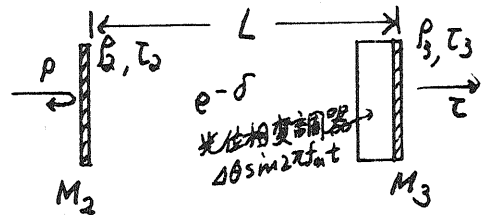 L
ρ₂, τ₂
ρ₃, τ₃
ρ
e^-δ
τ
光位相変調器
Δθ sin2πfₘt
M₂
M₃